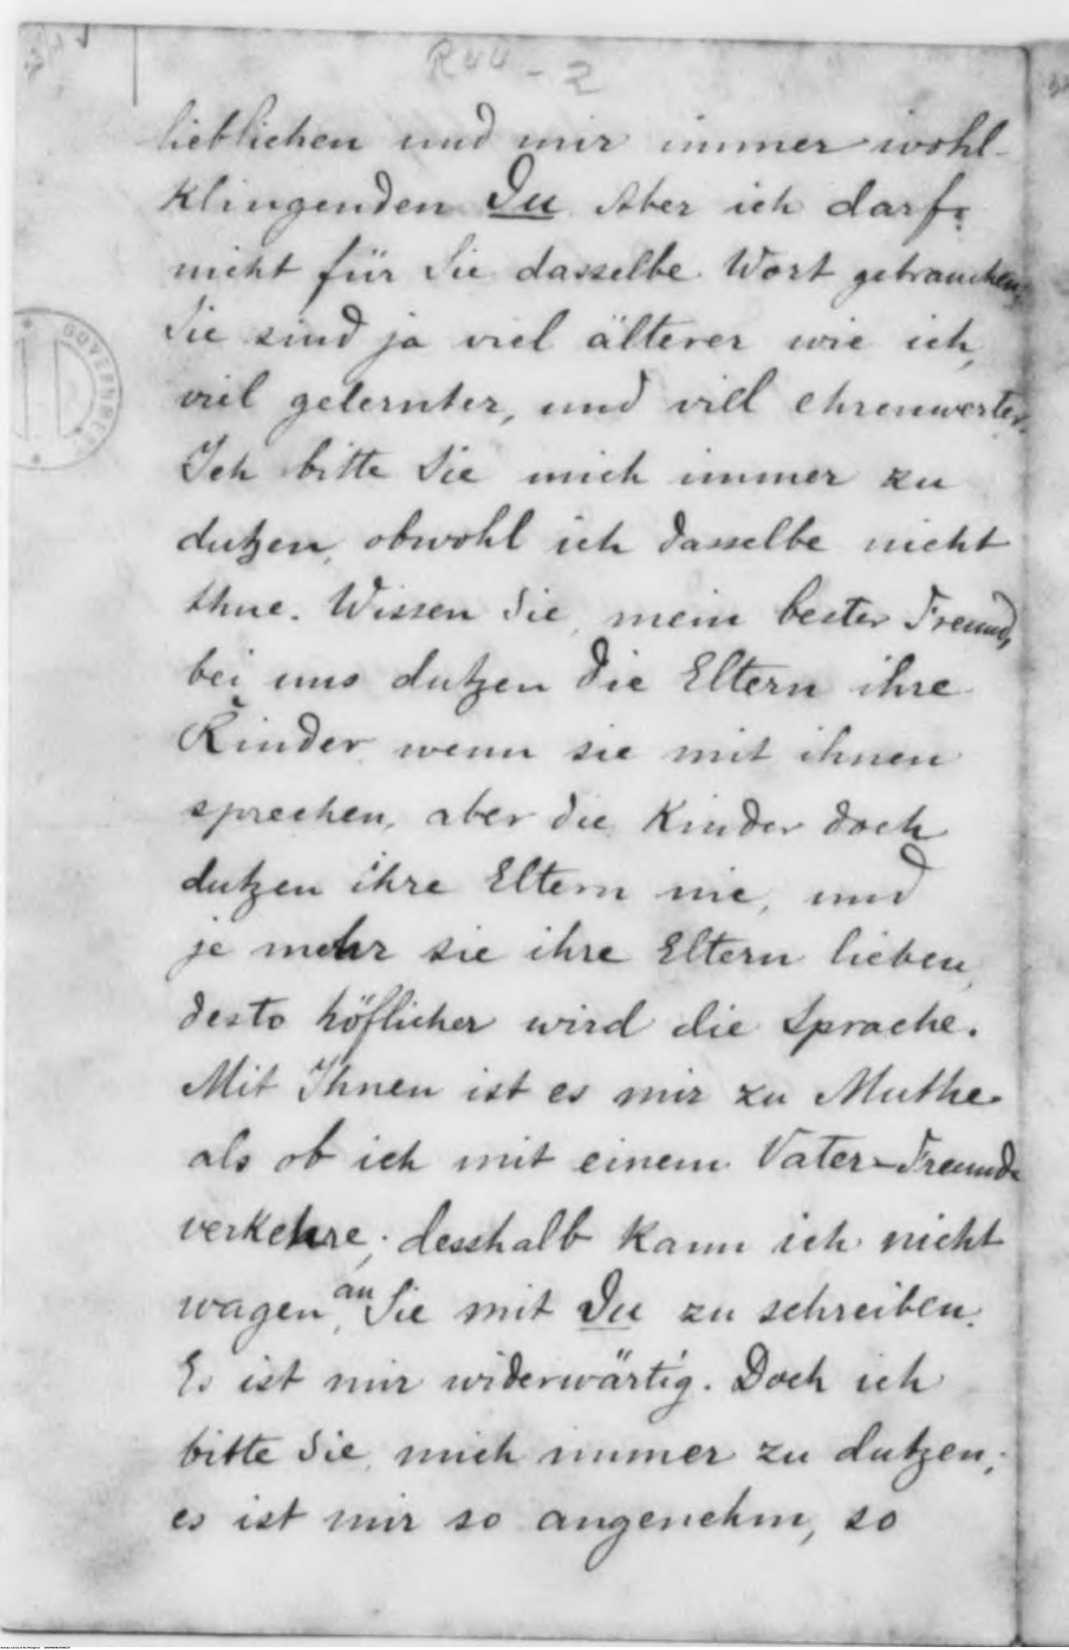 R44-2
lieblichen und mir immer wohl-
klingenden Du. Aber ich darf
nicht für Sie dasselbe Wort gebrauchen;
Sie sind ja viel älterer wie ich,
viel gelernter, und viel ehrenwerter.
Ich bitte Sie mich immer zu
dutzen, obwohl ich dasselbe nicht
thue. Wissen Sie, mein bester Freund,
bei uns dutzen die Eltern ihre
Kinder, wenn sie mit ihnen
sprechen, aber die Kinder doch
dutzen ihre Eltern nie, und
je mehr sie ihre Eltern lieben,
desto höflicher wird die Sprache.
Mit Ihnen ist es mir zu Muthe
als ob ich mit einem Vater-Freunde
verkehre; desshalb kann ich nicht
wagen, an Sie mit Du zu schreiben.
Es ist mir widerwärtig. Doch ich
bitte Sie, mich immer zu dutzen;
es ist mir so angenehm, so